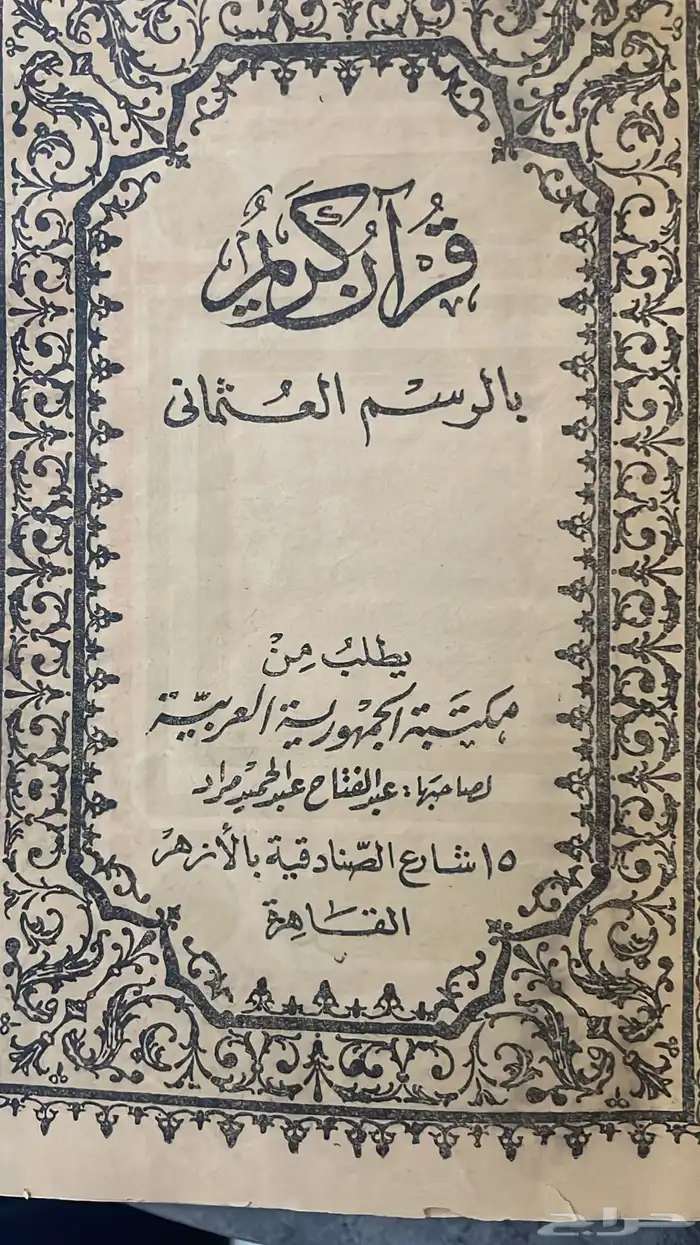 قُرْآنٌ كَرِيمٌ
بالرسْم العُثمانى
يطلبُ مِنْ
مكتَبَة الجمْهوريـة العربيّـة
لصاحبَها : عبد الفتاح عبد الحميد مراد
١٥ شارع الصَّنادقية بالأزهرْ
القَـاهِرة
حراج